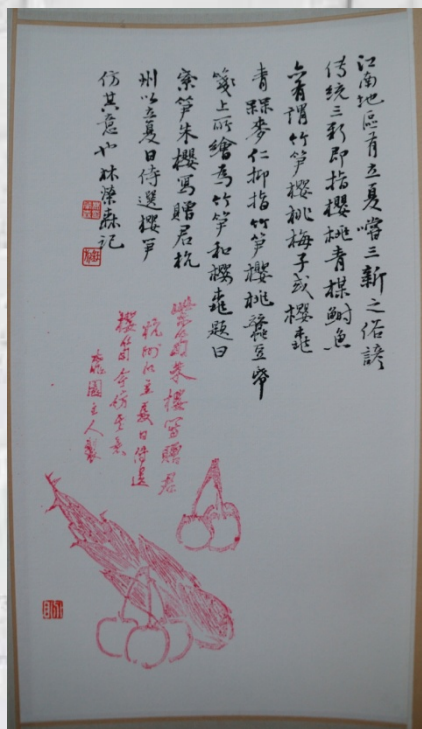 江南地區有立夏嚐三新之俗諺
传统三新即指櫻桃青梅鲥魚
亦有谓竹笋櫻桃梅子或櫻桃
青梅麥仁抑指竹笋櫻桃蚕豆等
箋上所繪為竹笋和櫻桃題曰
紫笋朱櫻寫贈君杭
州以立夏日侍選櫻笋
仿其意也 林榮森记
紫筍朱櫻寫贈君
杭州以立夏日侍選
櫻筍
主人製